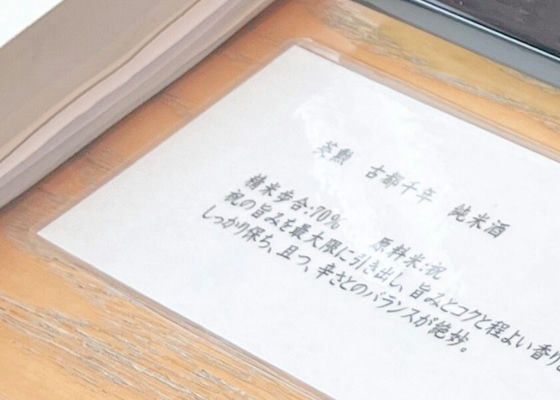 英勲 古都千年 純米酒
精米歩合:70% 原料米:祝
祝の旨みを最大限に引き出し、旨みとコクと程よい香り
しっかり保ち、且つ、辛さとのバランスが絶妙。